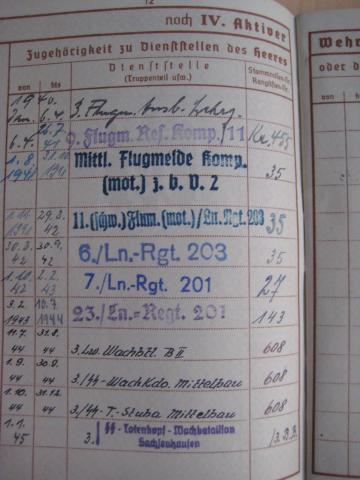 12
noch IV. Aktiver
Zugehörigkeit zu Dienststellen des Heeres
von bis Dienststelle (Truppenteil usw.) Stammrollen-Nr.
19 40. 3. Flugm. Ausb.
6.4. 9. Flugm. Res. Komp./11
1.8. Mittl. Flugmelde Komp.
1941 (mot.) z. b. V. 2 35
1.11. 29.3.
42 11. (schw.) Flum. (mot.)/Ln. Rgt. 203 35
30.3. 30.9.
42 42 6./Ln.-Rgt. 203 35
1.10. 2.2.
42 43 7./Ln.-Rgt. 201 27
3.2. 10.7.
1943 1944 23./Ln.-Regt. 201 143
11.7. 31.8.
44 44 3. Lsw. Wachbtl. B II 608
1.9. 30.9.
44 44 3./SS-WachKdo. Mittelbau 608
1.10. 31.12.
44 44 3./SS-T.-Stuba Mittelbau 608
1.1.
45 3. SS-Totenkopf-Wachbataillon
Sachsenhausen
Wehr
oder d